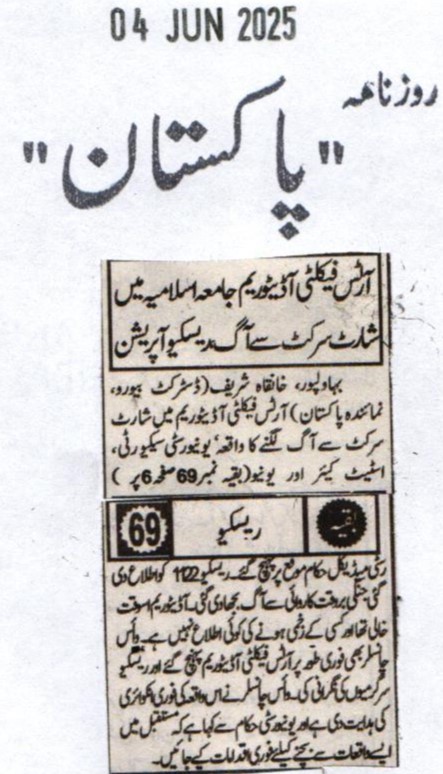 04 JUN 2025
روزنامہ
"پاکستان"
آرٹس فیکلٹی آڈیٹوریم جامعہ اسلامیہ میں
شارٹ سرکٹ سے آگ، ریسکیو آپریشن
بہاولپور، خانقاہ شریف (ڈسٹرکٹ بیورو،
نمائندہ پاکستان) آرٹس فیکلٹی آڈیٹوریم میں شارٹ
سرکٹ سے آگ لگنے کا واقعہ' یونیورسٹی سیکیورٹی،
اسٹیٹ کیئر اور یونیو (بقیہ نمبر 69 صفحہ 6 پر )
بقیہ ریسکیو 69
رسٹی میڈیکل حکام موقع پر پہنچ گئے۔ ریسکیو 1122 کو اطلاع دی
گئی جنکی بروقت کاروائی سے آگ بجھا دی گئی۔ آڈیٹوریم اسوقت
خالی تھا اور کسی کے زخمی ہونے کی کوئی اطلاع نہیں ہے۔ وائس
چانسلر بھی فوری طور پر آرٹس فیکلٹی آڈیٹوریم پہنچ گئے اور ریسکیو
سرگرمیوں کی نگرانی کی۔ وائس چانسلر نے اس واقعہ کی فوری انکوائری
کی ہدایت دی ہے اور یونیورسٹی حکام سے کہا ہے کہ مستقبل میں
ایسے واقعات سے بچنے کیلئے فوری اقدامات کیے جائیں۔